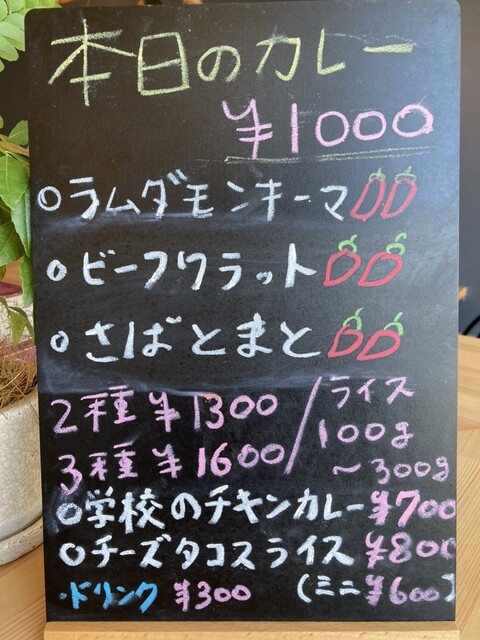 本日のカレー
¥1000
○ラムダモンキーマ
○ビーフワラット
○さばとまと
2種 ¥1300
3種 ¥1600
ライス
100g
～300g
○学校のチキンカレー ¥700
○チーズタコスライス ¥800
・ドリンク ¥300 (ミニ ¥600)